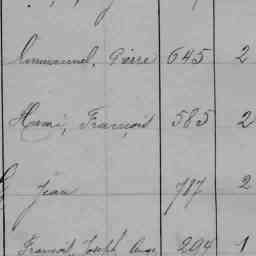 Emmanuel, Pierre 645 2
Henri, François 585 2
Jean 787 2
François, Joseph Ange 294 1